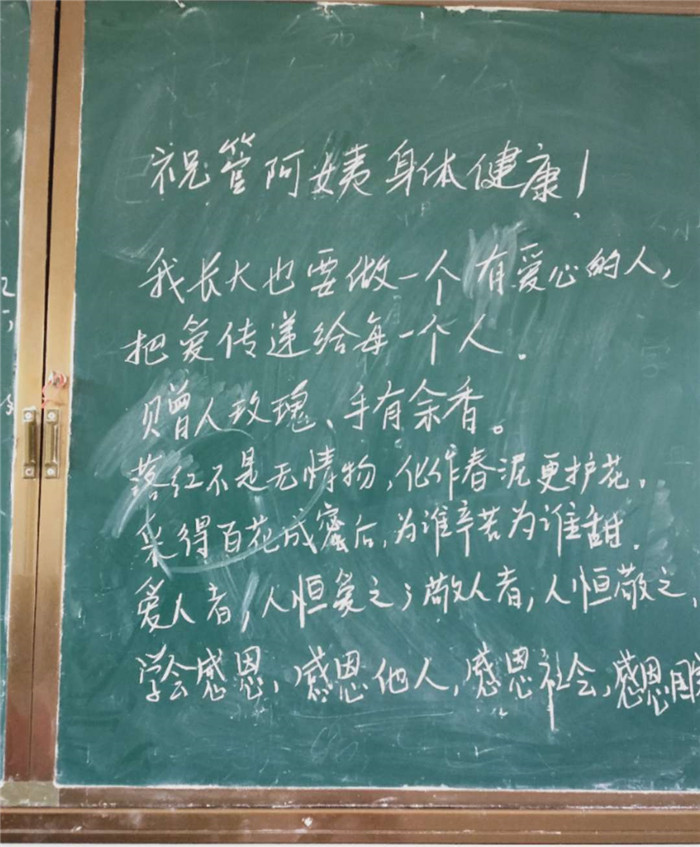 祝管阿姨身体健康！
我长大也要做一个有爱心的人，
把爱传递给每一个人．
赠人玫瑰、手有余香。
落红不是无情物，化作春泥更护花．
采得百花成蜜后，为谁辛苦为谁甜．
爱人者，人恒爱之；敬人者，人恒敬之，
学会感恩，感恩他人，感恩社会，感恩